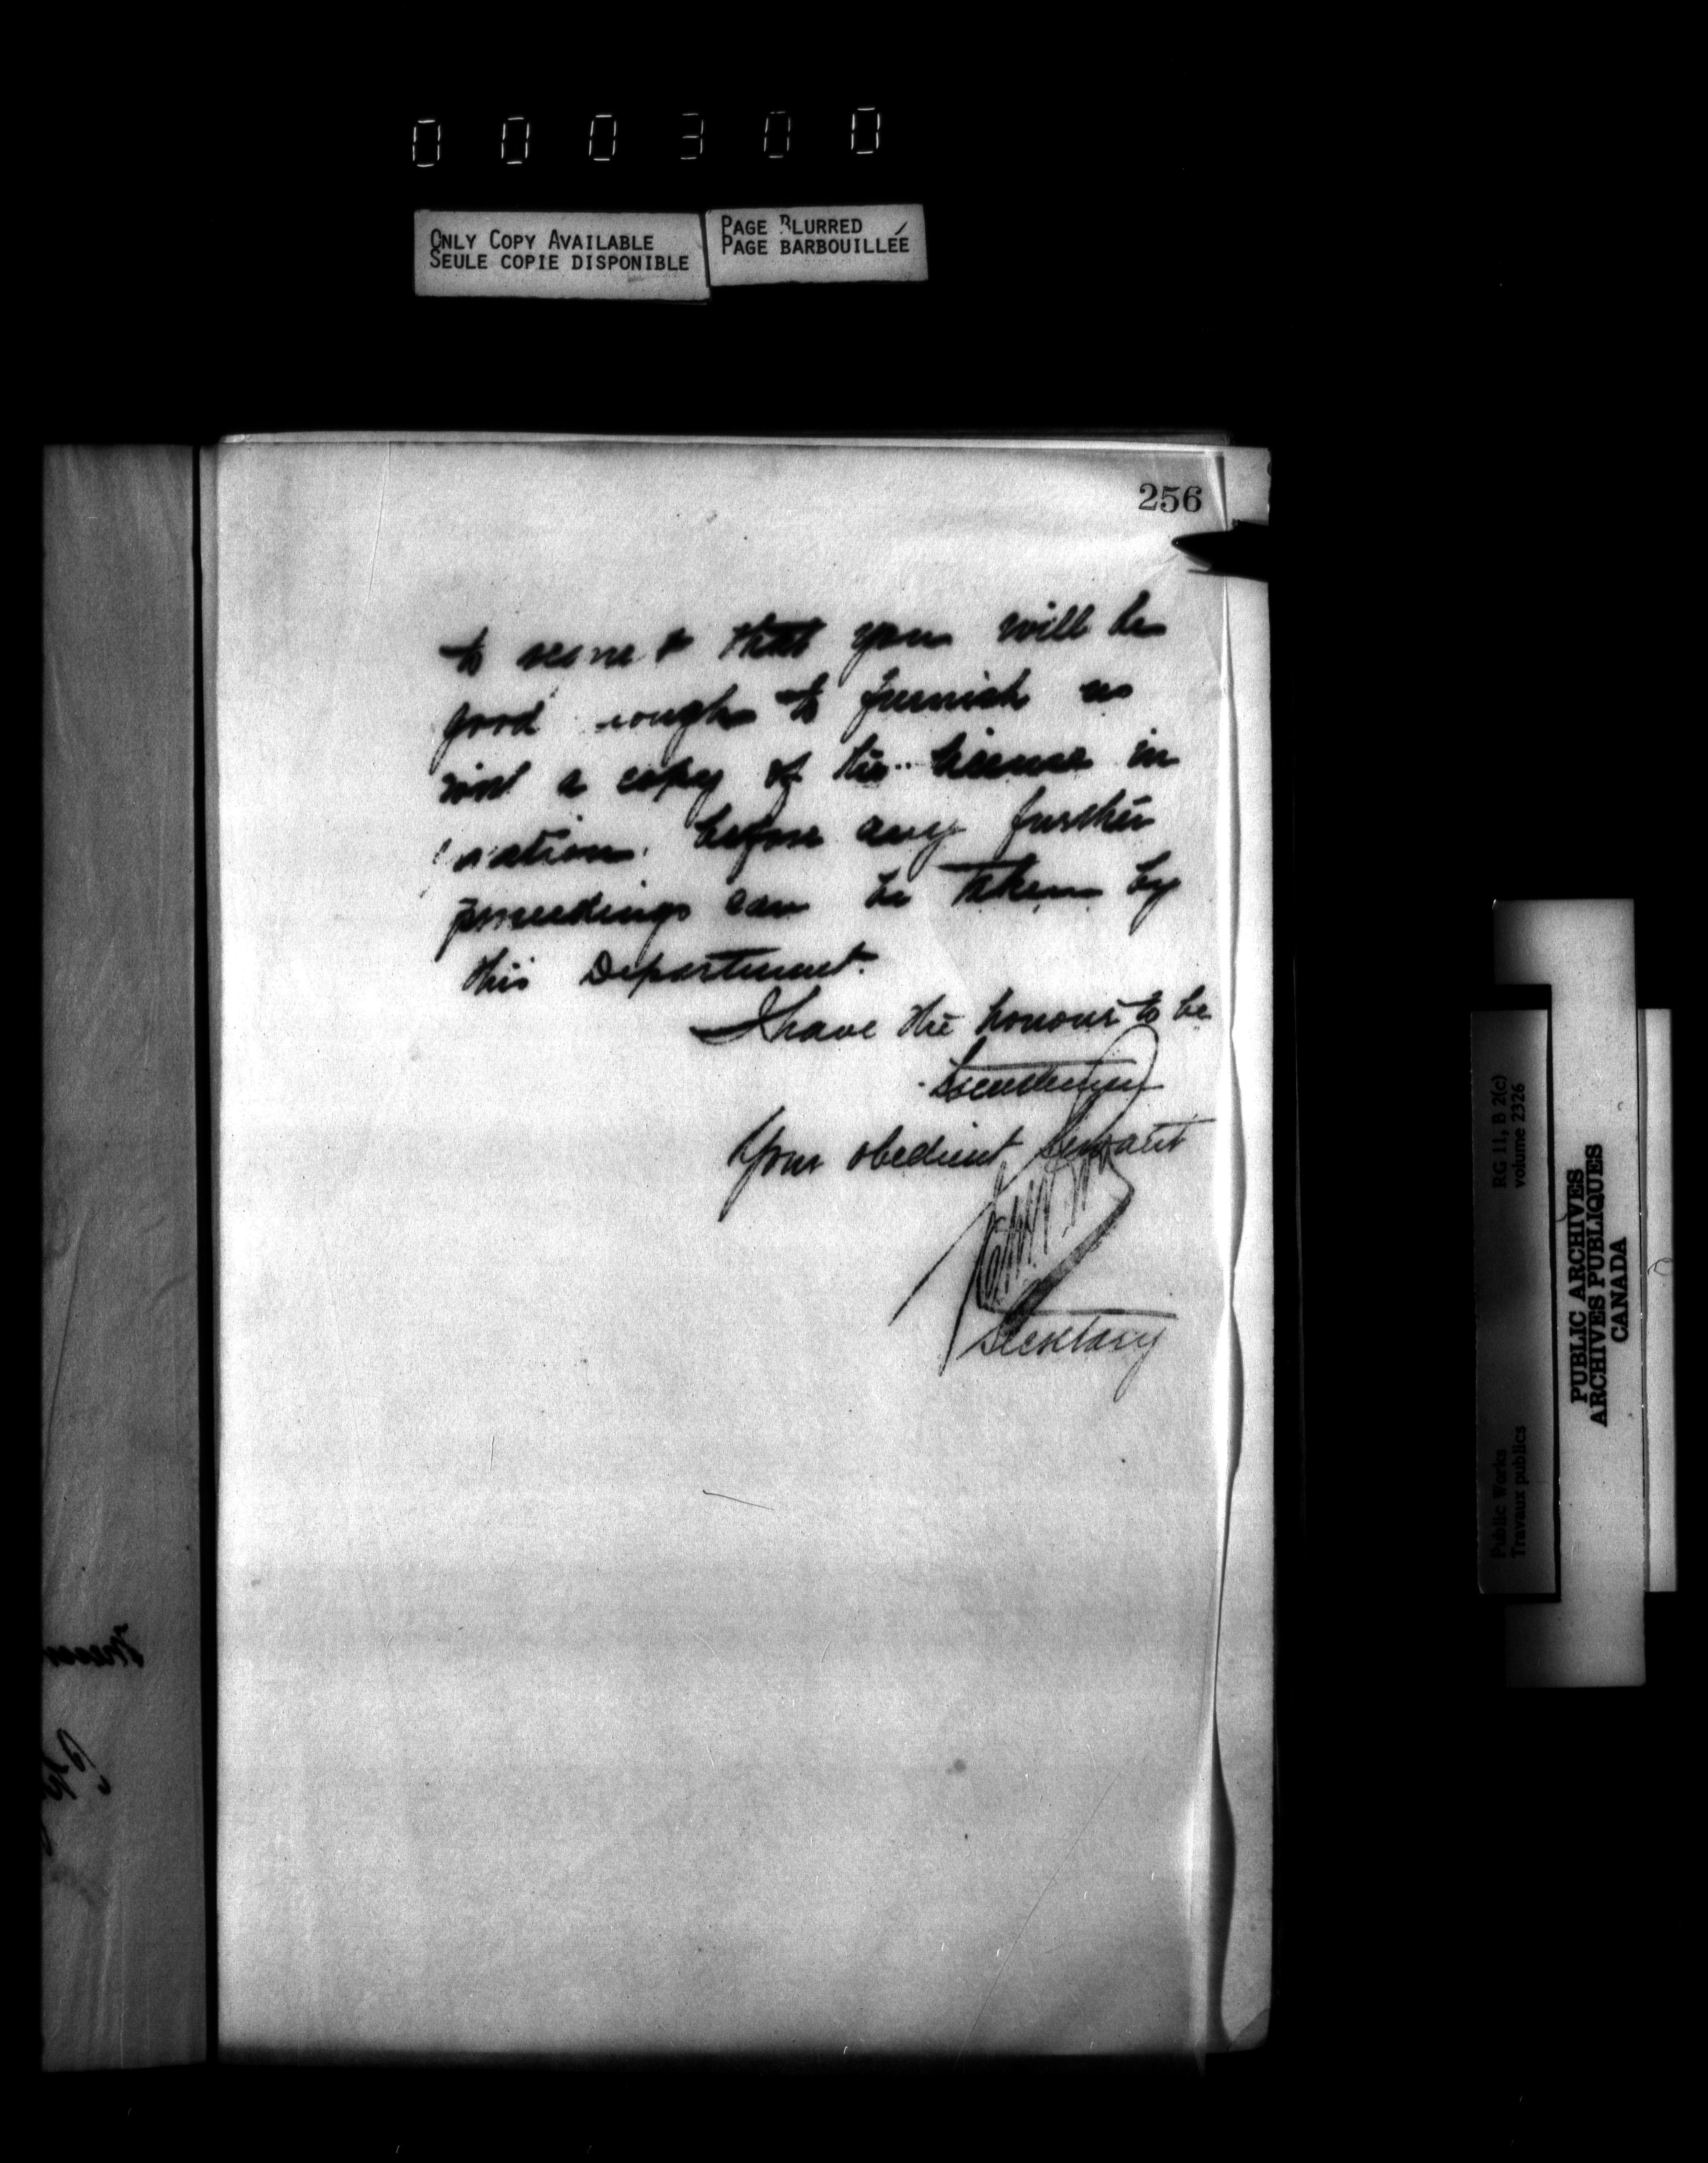 000300
ONLY COPY AVAILABLE
SEULE COPIE DISPONIBLE
PAGE BLURRED
PAGE BARBOUILLÉE
256
to that you will be
good enough to furnish us
with a copy of the license in
before any further
proceedings can be taken by
this Department.
I have the honour to be
Gentlemen
Your obedient Servant
Secretary
RG 11, B 2(c)
volume 2326
Public Works
Travaux publics
PUBLIC ARCHIVES
ARCHIVES PUBLIQUES
CANADA